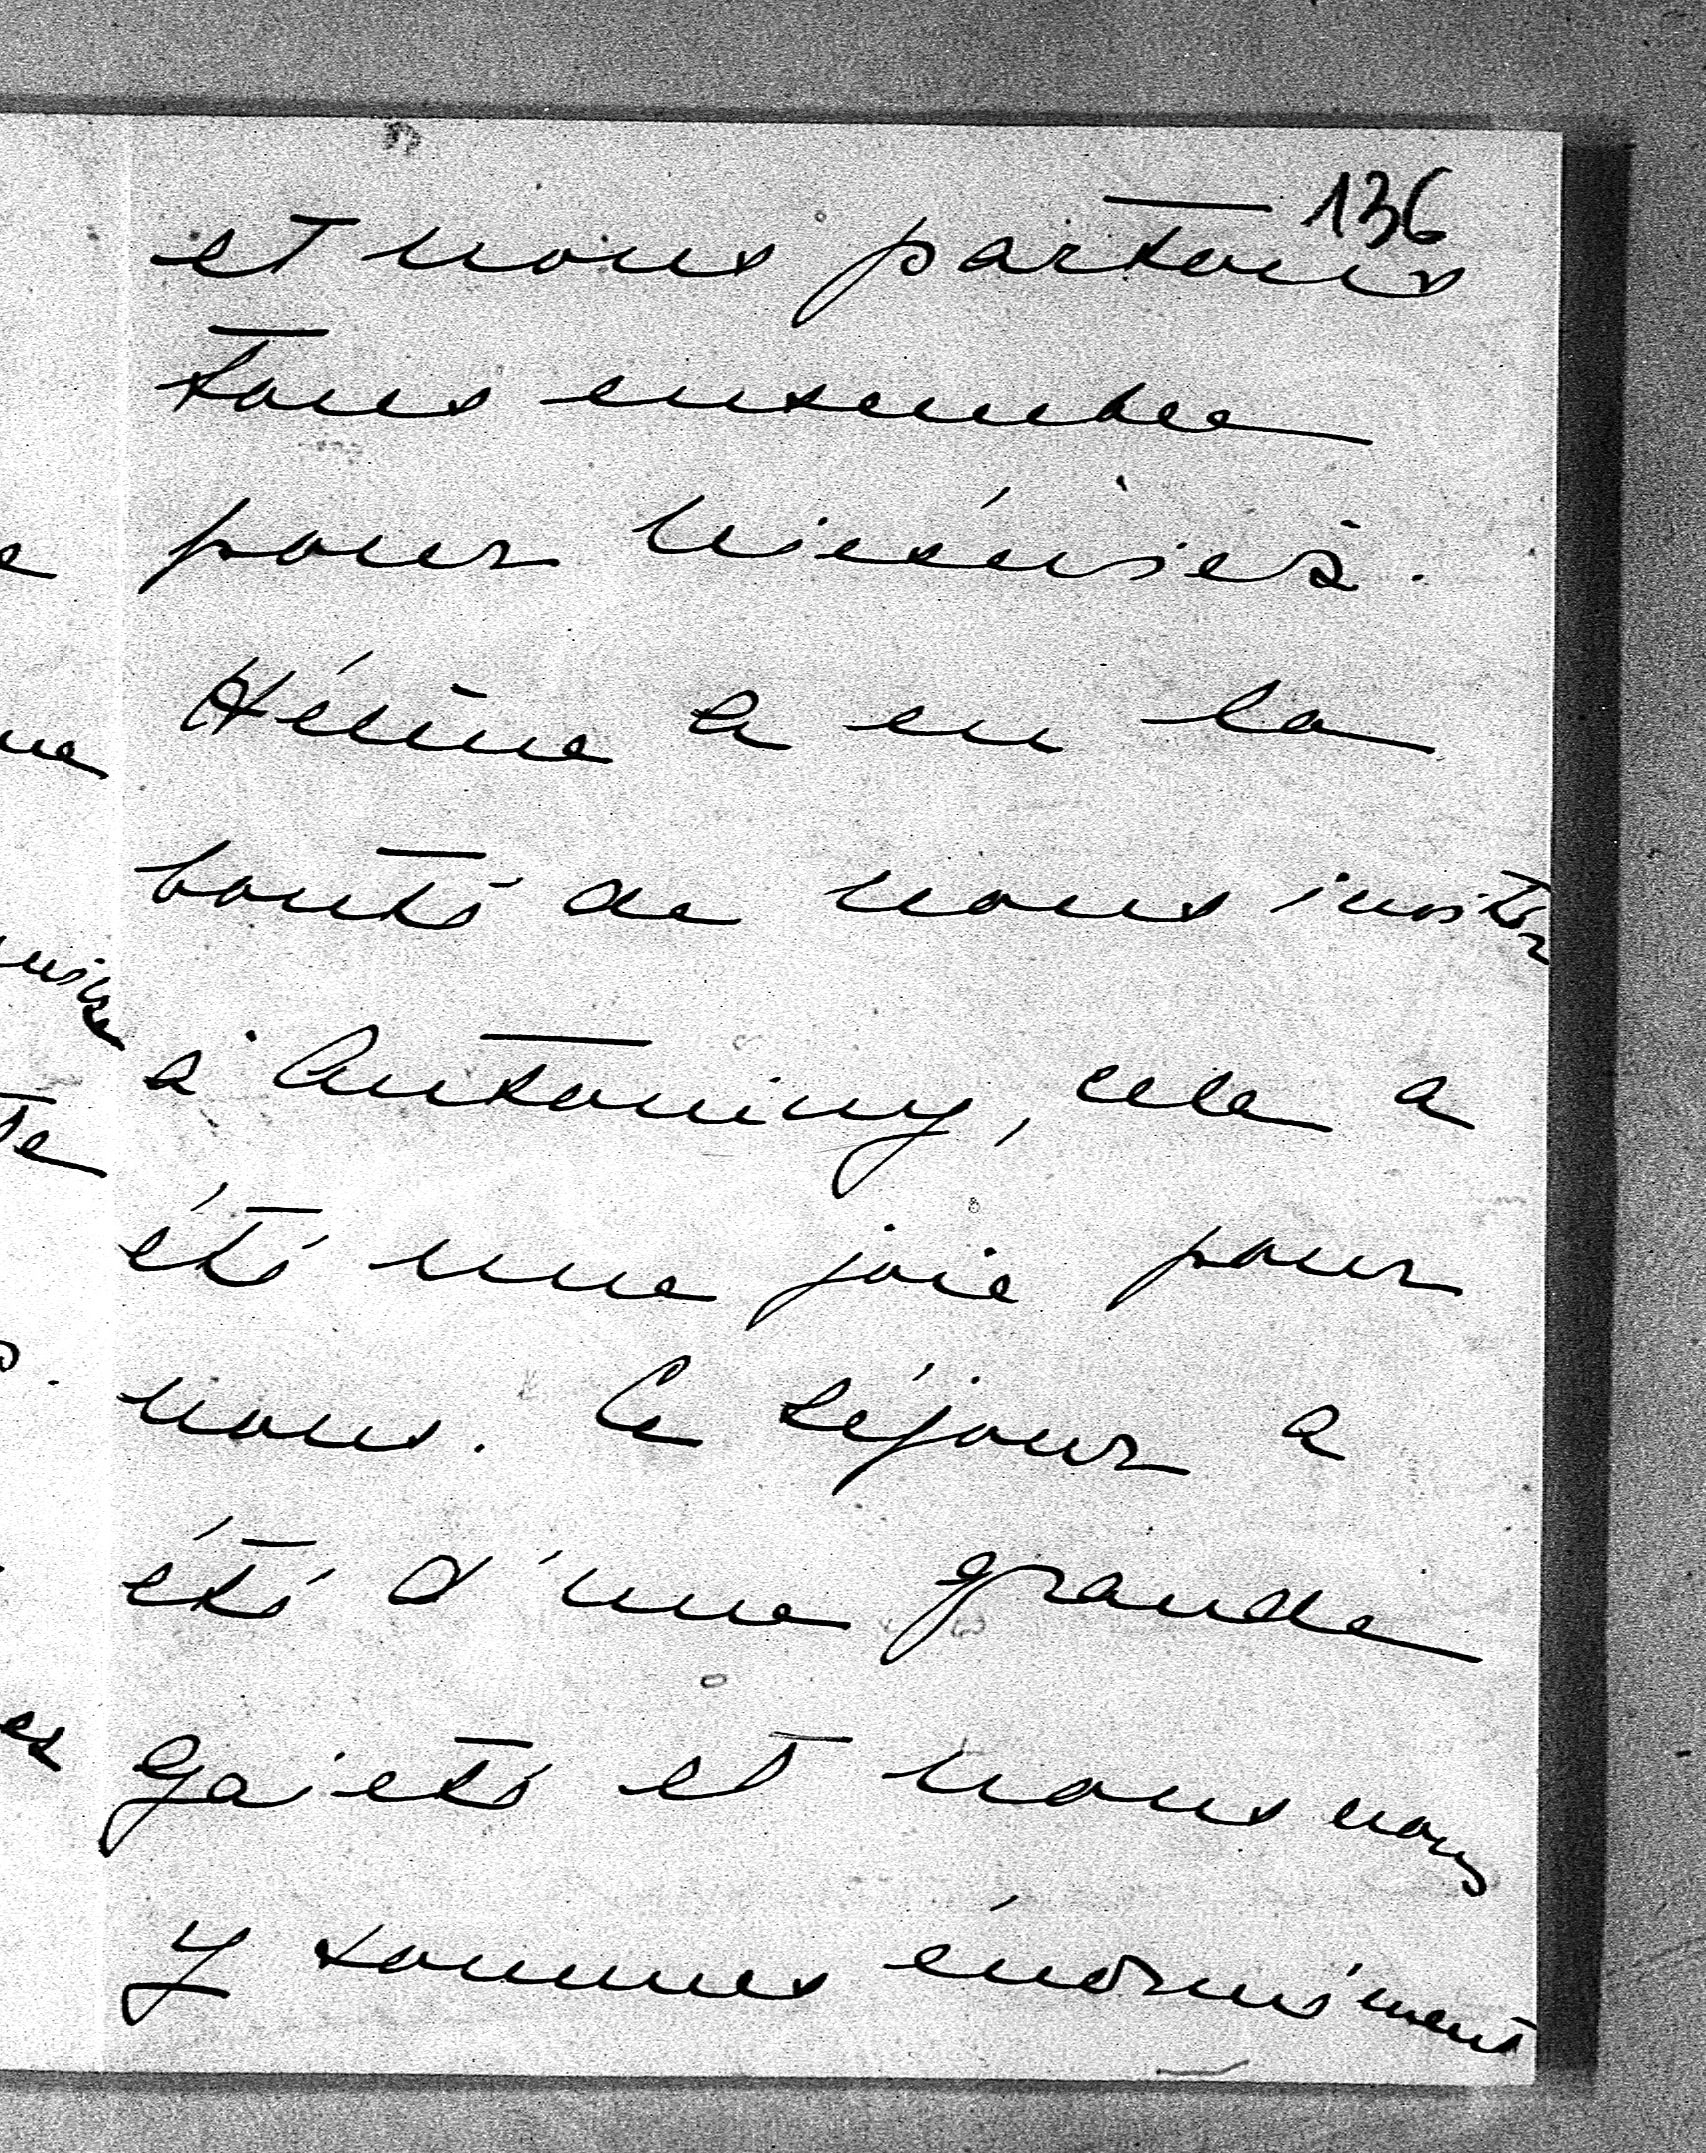 136
et nous partons
tous ensemble
pour
Hélène a eu la
bonté de nous inviter
à Antoniny, cela a
été une joie pour
nous. Ce séjour a
été d'une grande
gaieté et nous nous
y sommes énormément